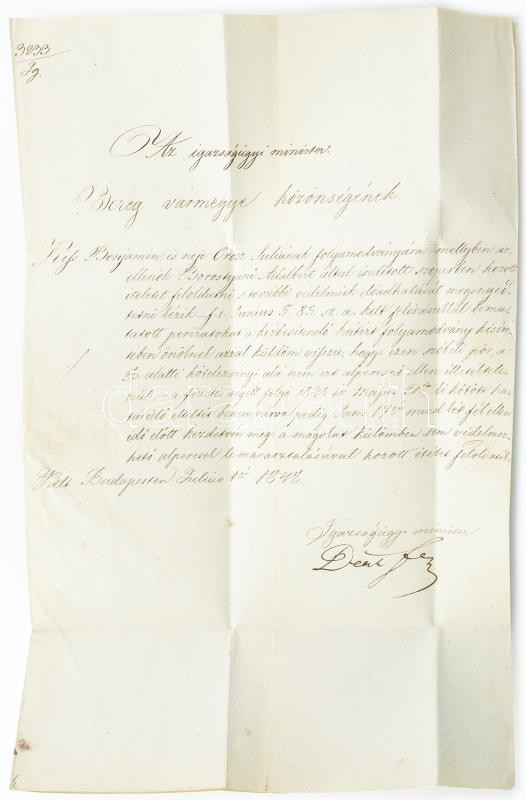 3233
Ig.
Az igazságügyi minister.
Bereg vármegye közönségének.
Kiss Benjamin és neje Orosz Juliának folyamodványára mellyben az
ellenök Borostyáni Adalbert által indított szóperben hozott
itéletet feloldatni, s további védelmeik előadhatását megenged-
tetni kérik – f. é. Junius 5. 83. sz. a. kelt felirásukkal bemu-
tatott periratokat a kézbesitendő határt folyamodvány kisére-
tében önöknek azzal küldöm vissza, hogy ezen szóbeli pör, a
alatti kötelezvényt alá nem irt alperesnő ellen
a fizetés végett folyó 1848 év Május 21én ki kötött ha-
táridő eltelte be nem várva pedig Jan. 17én mind két fél ellen
idő előtt kezdetvén meg: a magokat különben sem védelmez-
hető alperesek marasztalásával hozott itélet feloldatik.
Kelt Budapesten Julius 4én 1848.
Igazságügyi minister
Deák
darabanth